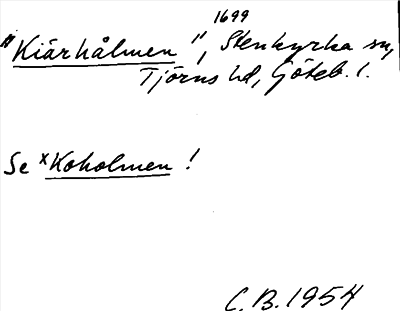 1699
"Kiärhålmen", Stenkyrka sn,
Tjörns hd, Göteb. l.
Se xKoholmen!
C.B. 1954